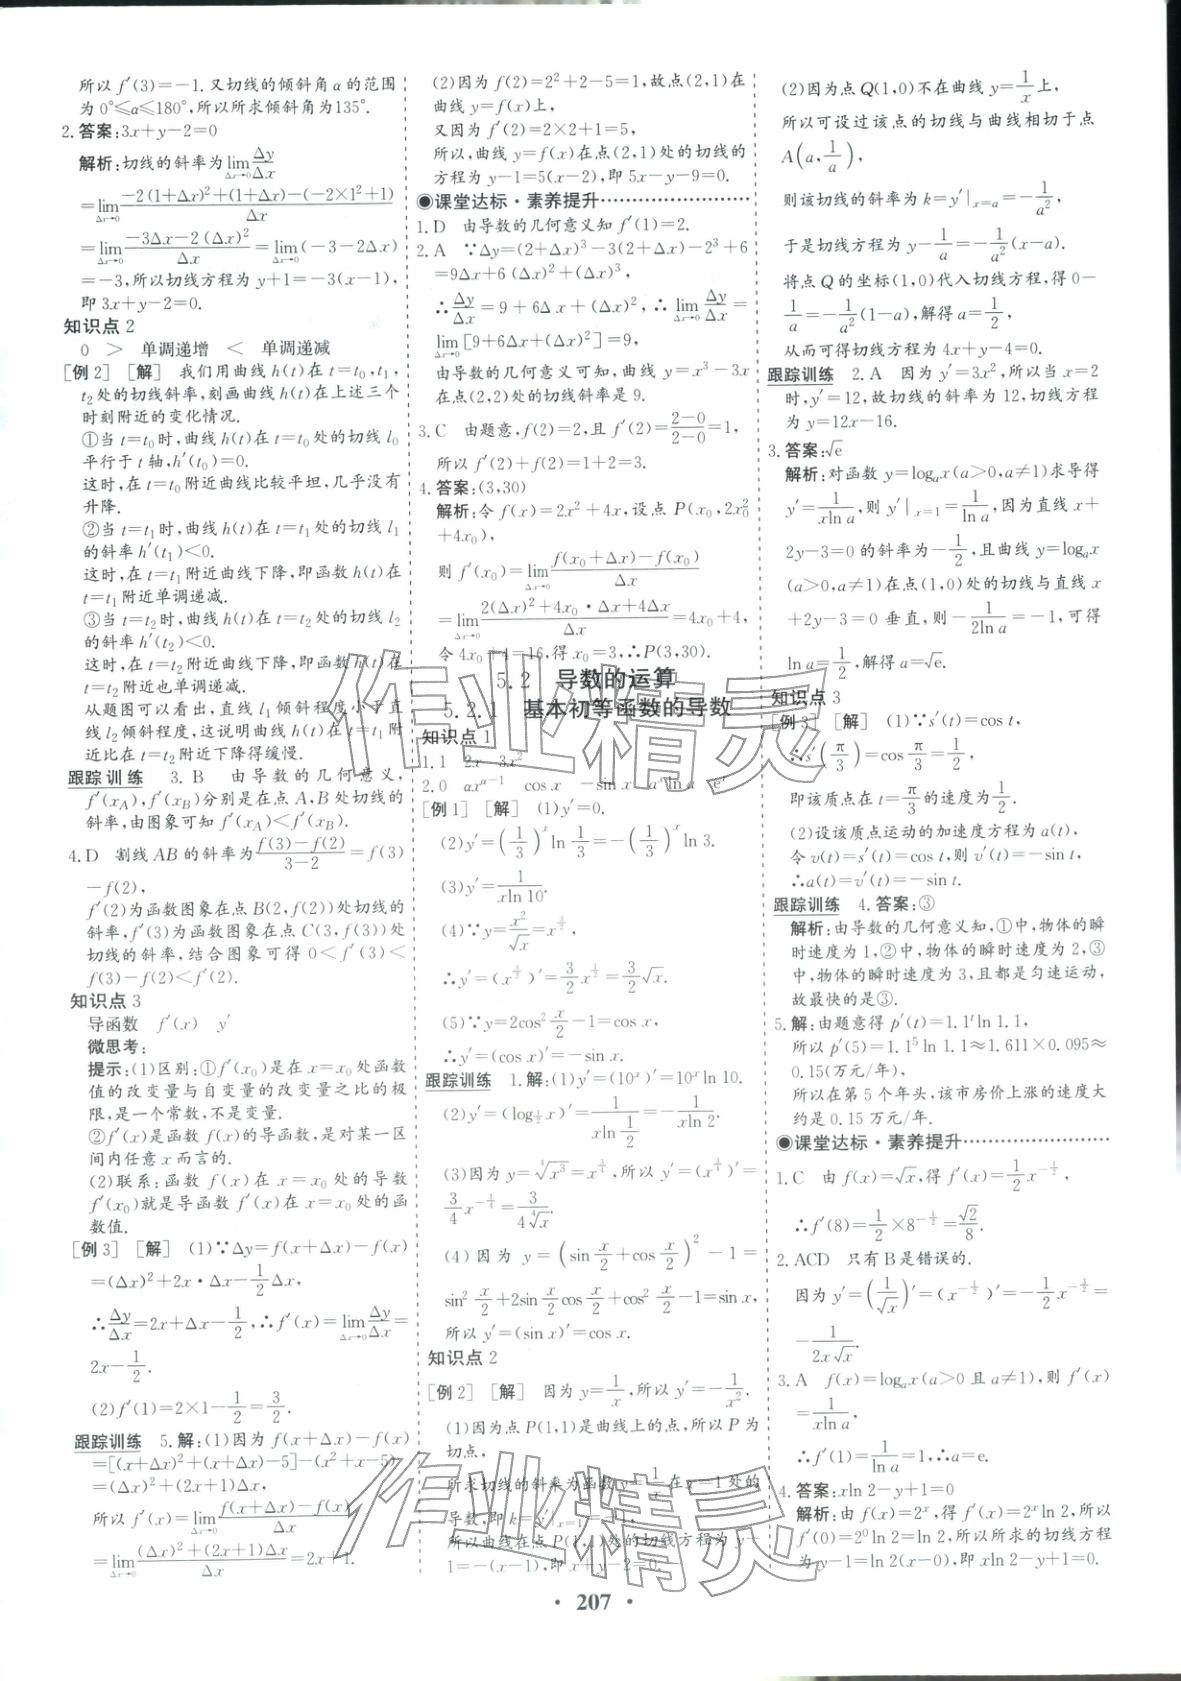 所以 f′(3)=-1. 又切线的倾斜角 α 的范围
为 0°≤α≤180°,所以所求倾斜角为135°.
2. 答案:3x+y-2=0
解析:切线的斜率为 lim(Δx→0) Δy/Δx
=lim(Δx→0) [-2(1+Δx)²+(1+Δx)-(-2×1²+1)]/Δx
=lim(Δx→0) [-3Δx-2(Δx)²]/Δx=lim(Δx→0)(-3-2Δx)
=-3,所以切线方程为 y+1=-3(x-1),
即 3x+y-2=0.
知识点 2
0 > 单调递增 < 单调递减
[例 2] [解] 我们用曲线 h(t) 在 t=t₀,t₁,
t₂ 处的切线斜率,刻画曲线 h(t) 在上述三个
时刻附近的变化情况.
①当 t=t₀时,曲线 h(t)在 t=t₀ 处的切线 l₀
平行于 t 轴,h′(t₀)=0.
这时,在 t=t₀附近曲线比较平坦,几乎没有
升降.
②当 t=t₁时,曲线 h(t)在 t=t₁ 处的切线 l₁
的斜率 h′(t₁)<0.
这时,在 t=t₁附近曲线下降,即函数 h(t)在
t=t₁附近单调递减.
③当 t=t₂时,曲线 h(t)在 t=t₂ 处的切线 l₂
的斜率 h′(t₂)<0.
这时,在 t=t₂附近曲线下降,即函数 h(t)在
t=t₂附近也单调递减.
从题图可以看出,直线 l₁ 倾斜程度小于直
线 l₂倾斜程度,这说明曲线 h(t)在 t=t₁附
近比在 t=t₂附近下降得缓慢.
跟踪训练 3. B 由导数的几何意义,
f′(x_A),f′(x_B)分别是在点 A,B 处切线的
斜率,由图象可知 f′(x_A)<f′(x_B).
4. D 割线 AB 的斜率为 [f(3)-f(2)]/(3-2)=f(3)
-f(2),
f′(2)为函数图象在点 B(2,f(2))处切线的
斜率,f′(3)为函数图象在点 C(3,f(3))处
切线的斜率,结合图象可得 0<f′(3)<
f(3)-f(2)<f′(2).
知识点 3
导函数 f′(x) y′
微思考:
提示:(1)区别:①f′(x₀)是在 x=x₀处函数
值的改变量与自变量的改变量之比的极
限,是一个常数,不是变量.
②f′(x)是函数 f(x)的导函数,是对某一区
间内任意 x 而言的.
(2)联系:函数 f(x)在 x=x₀处的导数
f′(x₀)就是导函数 f′(x)在 x=x₀处的函
数值.
[例 3] [解] (1)∵Δy=f(x+Δx)-f(x)
=(Δx)²+2x·Δx-1/2 Δx,
∴Δy/Δx=2x+Δx-1/2,∴f′(x)=lim(Δx→0) Δy/Δx=
2x-1/2.
(2)f′(1)=2×1-1/2=3/2.
跟踪训练 5. 解:(1)因为 f(x+Δx)-f(x)
=[(x+Δx)²+(x+Δx)-5]-(x²+x-5)
=(Δx)²+(2x+1)Δx,
所以 f′(x)=lim(Δx→0) [f(x+Δx)-f(x)]/Δx
=lim(Δx→0) [(Δx)²+(2x+1)Δx]/Δx=2x+1.
(2)因为 f(2)=2²+2-5=1,故点(2,1)在
曲线 y=f(x)上,
又因为 f′(2)=2×2+1=5,
所以,曲线 y=f(x)在点(2,1)处的切线的
方程为 y-1=5(x-2),即 5x-y-9=0.
◉课堂达标·素养提升
1. D 由导数的几何意义知 f′(1)=2.
2. A ∵Δy=(2+Δx)³-3(2+Δx)-2³+6
=9Δx+6(Δx)²+(Δx)³,
∴Δy/Δx=9+6Δx+(Δx)²,∴lim(Δx→0) Δy/Δx=
lim(Δx→0)[9+6Δx+(Δx)²]=9,
由导数的几何意义可知,曲线 y=x³-3x
在点(2,2)处的切线斜率是 9.
3. C 由题意,f(2)=2,且 f′(2)=(2-0)/(2-0)=1,
所以 f′(2)+f(2)=1+2=3.
4. 答案:(3,30)
解析:令 f(x)=2x²+4x,设点 P(x₀,2x₀²
+4x₀),
则 f′(x₀)=lim(Δx→0) [f(x₀+Δx)-f(x₀)]/Δx
=lim(Δx→0) [2(Δx)²+4x₀·Δx+4Δx]/Δx=4x₀+4,
令 4x₀+4=16,得 x₀=3,∴P(3,30).
5.2 导数的运算
5.2.1 基本初等函数的导数
知识点 1
1. 1 2x 3x²
2. 0 αx^(α-1) cos x -sin x aˣln a eˣ
[例 1] [解] (1)y′=0.
(2)y′=(1/3)ˣ ln 1/3=-(1/3)ˣ ln 3.
(3)y′=1/(xln 10).
(4)∵y=x²/√x=x^(3/2),
∴y′=(x^(3/2))′=3/2 x^(1/2)=3/2 √x.
(5)∵y=2cos² x/2-1=cos x,
∴y′=(cos x)′=-sin x.
跟踪训练 1. 解:(1)y′=(10ˣ)′=10ˣln 10.
(2)y′=(log_(1/2) x)′=1/(xln 1/2)=-1/(xln 2).
(3)因为 y=⁴√x³=x^(3/4),所以 y′=(x^(3/4))′=
3/4 x^(-1/4)=3/(4 ⁴√x).
(4)因为 y=(sin x/2+cos x/2)²-1=
sin² x/2+2sin x/2 cos x/2+cos² x/2-1=sin x,
所以 y′=(sin x)′=cos x.
知识点 2
[例 2] [解] 因为 y=1/x,所以 y′=-1/x².
(1)因为点 P(1,1)是曲线上的点,所以 P 为
切点,
所求切线的斜率为函数 y=1/x 在 x=1 处的
导数,即 k=y′|ₓ₌₁=-1,
所以曲线在点 P(1,1)处的切线方程为 y-
1=-(x-1),即 x+y-2=0.
(2)因为点 Q(1,0)不在曲线 y=1/x 上,
所以可设过该点的切线与曲线相切于点
A(a,1/a),
则该切线的斜率为 k=y′|ₓ₌ₐ=-1/a²,
于是切线方程为 y-1/a=-1/a²(x-a).
将点 Q 的坐标(1,0)代入切线方程,得 0-
1/a=-1/a²(1-a),解得 a=1/2,
从而可得切线方程为 4x+y-4=0.
跟踪训练 2. A 因为 y′=3x²,所以当 x=2
时,y′=12,故切线的斜率为 12,切线方程
为 y=12x-16.
3. 答案:√e
解析:对函数 y=logₐx(a>0,a≠1)求导得
y′=1/(xln a),则 y′|ₓ₌₁=1/ln a,因为直线 x+
2y-3=0 的斜率为-1/2,且曲线 y=logₐx
(a>0,a≠1)在点(1,0)处的切线与直线 x
+2y-3=0 垂直,则-1/(2ln a)=-1,可得
ln a=1/2,解得 a=√e.
知识点 3
[例 3] [解] (1)∵s′(t)=cos t,
∴s′(π/3)=cos π/3=1/2,
即该质点在 t=π/3 的速度为 1/2.
(2)设该质点运动的加速度方程为 a(t),
令 v(t)=s′(t)=cos t,则 v′(t)=-sin t,
∴a(t)=v′(t)=-sin t.
跟踪训练 4. 答案:③
解析:由导数的几何意义知,①中,物体的瞬
时速度为 1,②中,物体的瞬时速度为 2,③
中,物体的瞬时速度为 3,且都是匀速运动,
故最快的是③.
5. 解:由题意得 p′(t)=1.1ᵗln 1.1,
所以 p′(5)=1.1⁵ln 1.1≈1.611×0.095≈
0.15(万元/年),
所以在第 5 个年头,该市房价上涨的速度大
约是 0.15 万元/年.
◉课堂达标·素养提升
1. C 由 f(x)=√x,得 f′(x)=1/2 x^(-1/2),
∴f′(8)=1/2×8^(-1/2)=√2/8.
2. ACD 只有 B 是错误的.
因为 y′=(1/√x)′=(x^(-1/2))′=-1/2 x^(-3/2)=
-1/(2x√x).
3. A f(x)=logₐx(a>0 且 a≠1),则 f′(x)
=1/(xln a),
∴f′(1)=1/ln a=1,∴a=e.
4. 答案:xln 2-y+1=0
解析:由 f(x)=2ˣ,得 f′(x)=2ˣln 2,所以
f′(0)=2⁰ln 2=ln 2,所以所求的切线方程
为 y-1=ln 2(x-0),即 xln 2-y+1=0.
作业精灵
作业精灵
· 207 ·